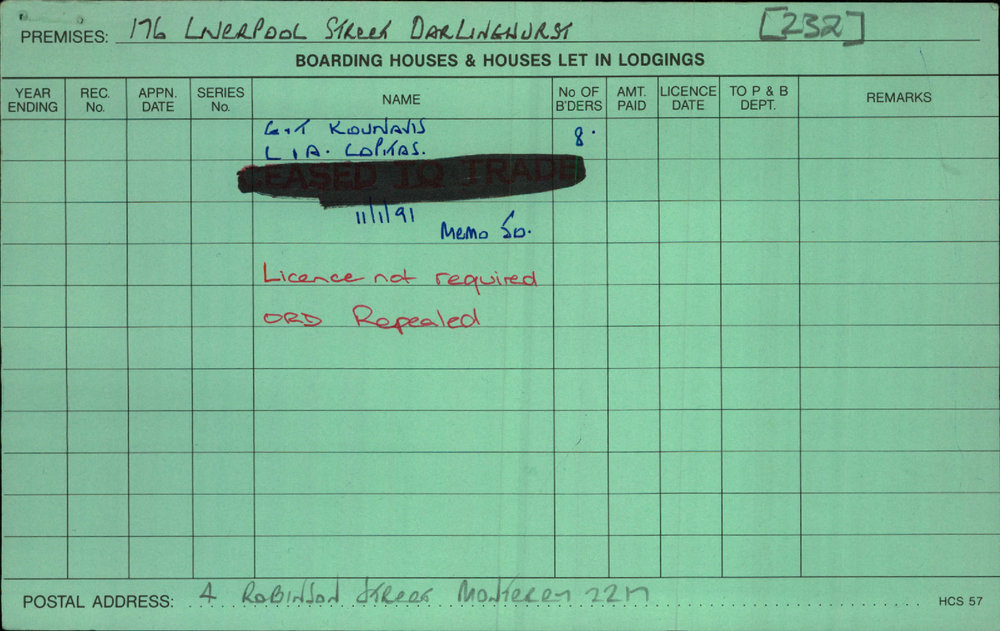 PREMISES: 176 LIVERPOOL STREET DARLINGHURST [232]
BOARDING HOUSES & HOUSES LET IN LODGINGS
YEAR ENDING REC. No. APPN. DATE SERIES No. NAME No OF B'DERS AMT. PAID LICENCE DATE TO P & B DEPT. REMARKS
G & T KOUNAVIS 8.
L & A. COPITAS.
CEASED TO TRADE
11/1/91
Memo SD.
Licence not required
ORD Repealed
POSTAL ADDRESS: 4 ROBINSON STREET MONTEREY 2217
HCS 57